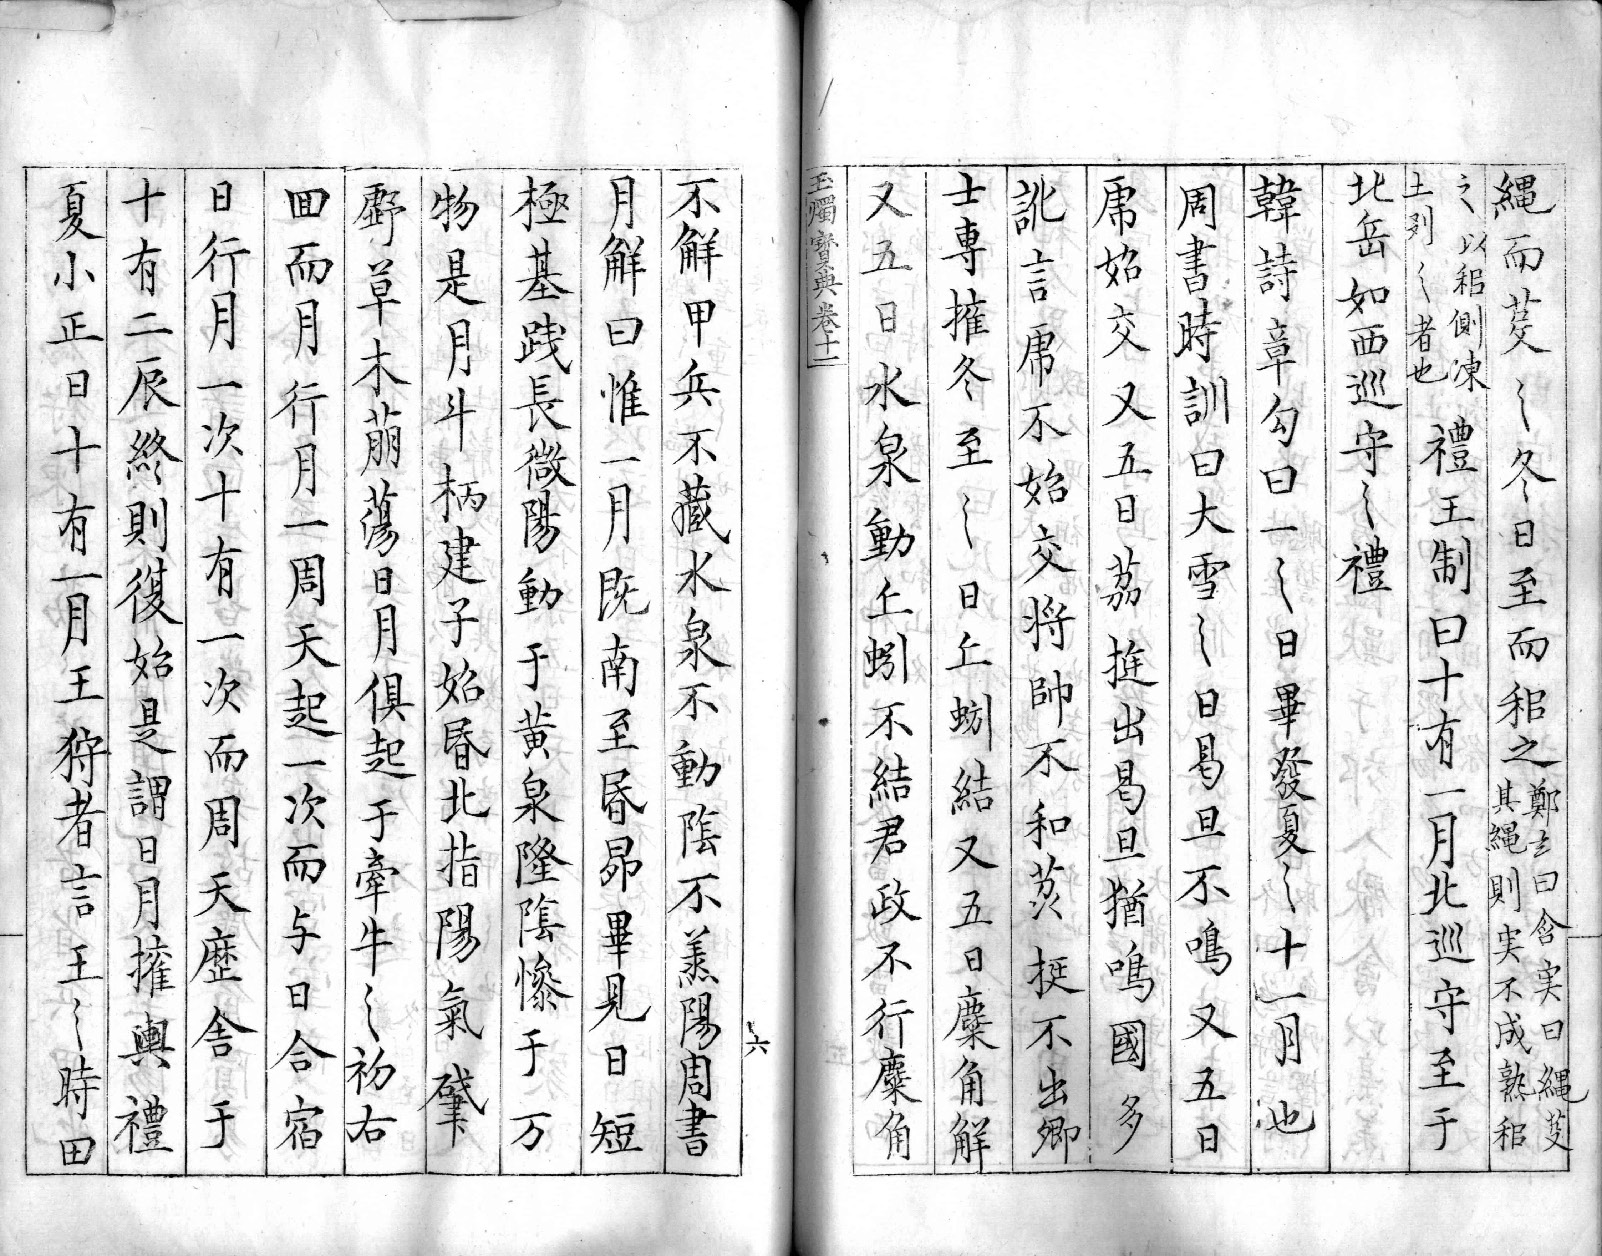 繩而芟〻冬日至而耜之鄭玄曰含実曰繩芟其繩則実不成熟耜
之以耜側凍土剗〻者也禮王制曰十有一月北巡守至于
北岳如西巡守〻禮
韓詩章勾曰一〻日畢發夏〻十一月也
周書時訓曰大雪〻日曷旦不鳴又五日
乕始交又五日茘挺出曷旦猶鳴國多
訛言乕不始交将帥不和茘挺不出卿
士專擁冬至〻日丘蚓結又五日麋角解
又五日水泉動丘蚓不結君政不行麋角
玉燭寳典卷十一
不解甲兵不藏水泉不動陰不羕陽周書
月解曰惟一月既南至昬昴畢見日短
極基践長微陽動于黄泉隆陰慘于万
物是月斗柄建子始昬北指陽氣肈
虧草木萠蕩日月俱起于牽牛〻初右
回而月行月一周天起一次而与日合宿
日行月一次十有一次而周天歴舎于
十有二辰終則復始是謂日月擁輿禮
夏小正日十有一月王狩者言王〻時田
六